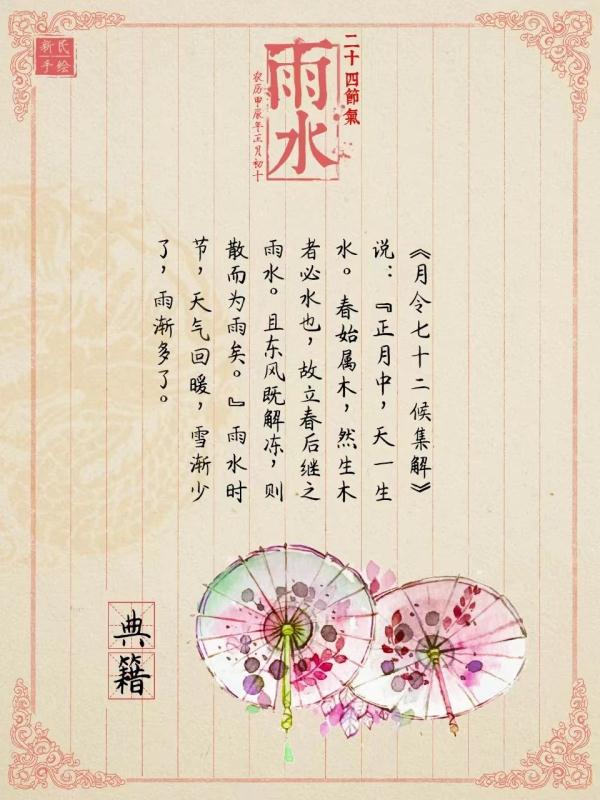 新氏
手绘
二十四節氣
雨水
农历甲辰年正月初十
《月令七十二候集解》
说：『正月中，天一生
水。春始属木，然生木
者必水也，故立春后继之
雨水。且东风既解冻，则
散而为雨矣。』雨水时
节，天气回暖，雪渐少
了，雨渐多了。
典籍